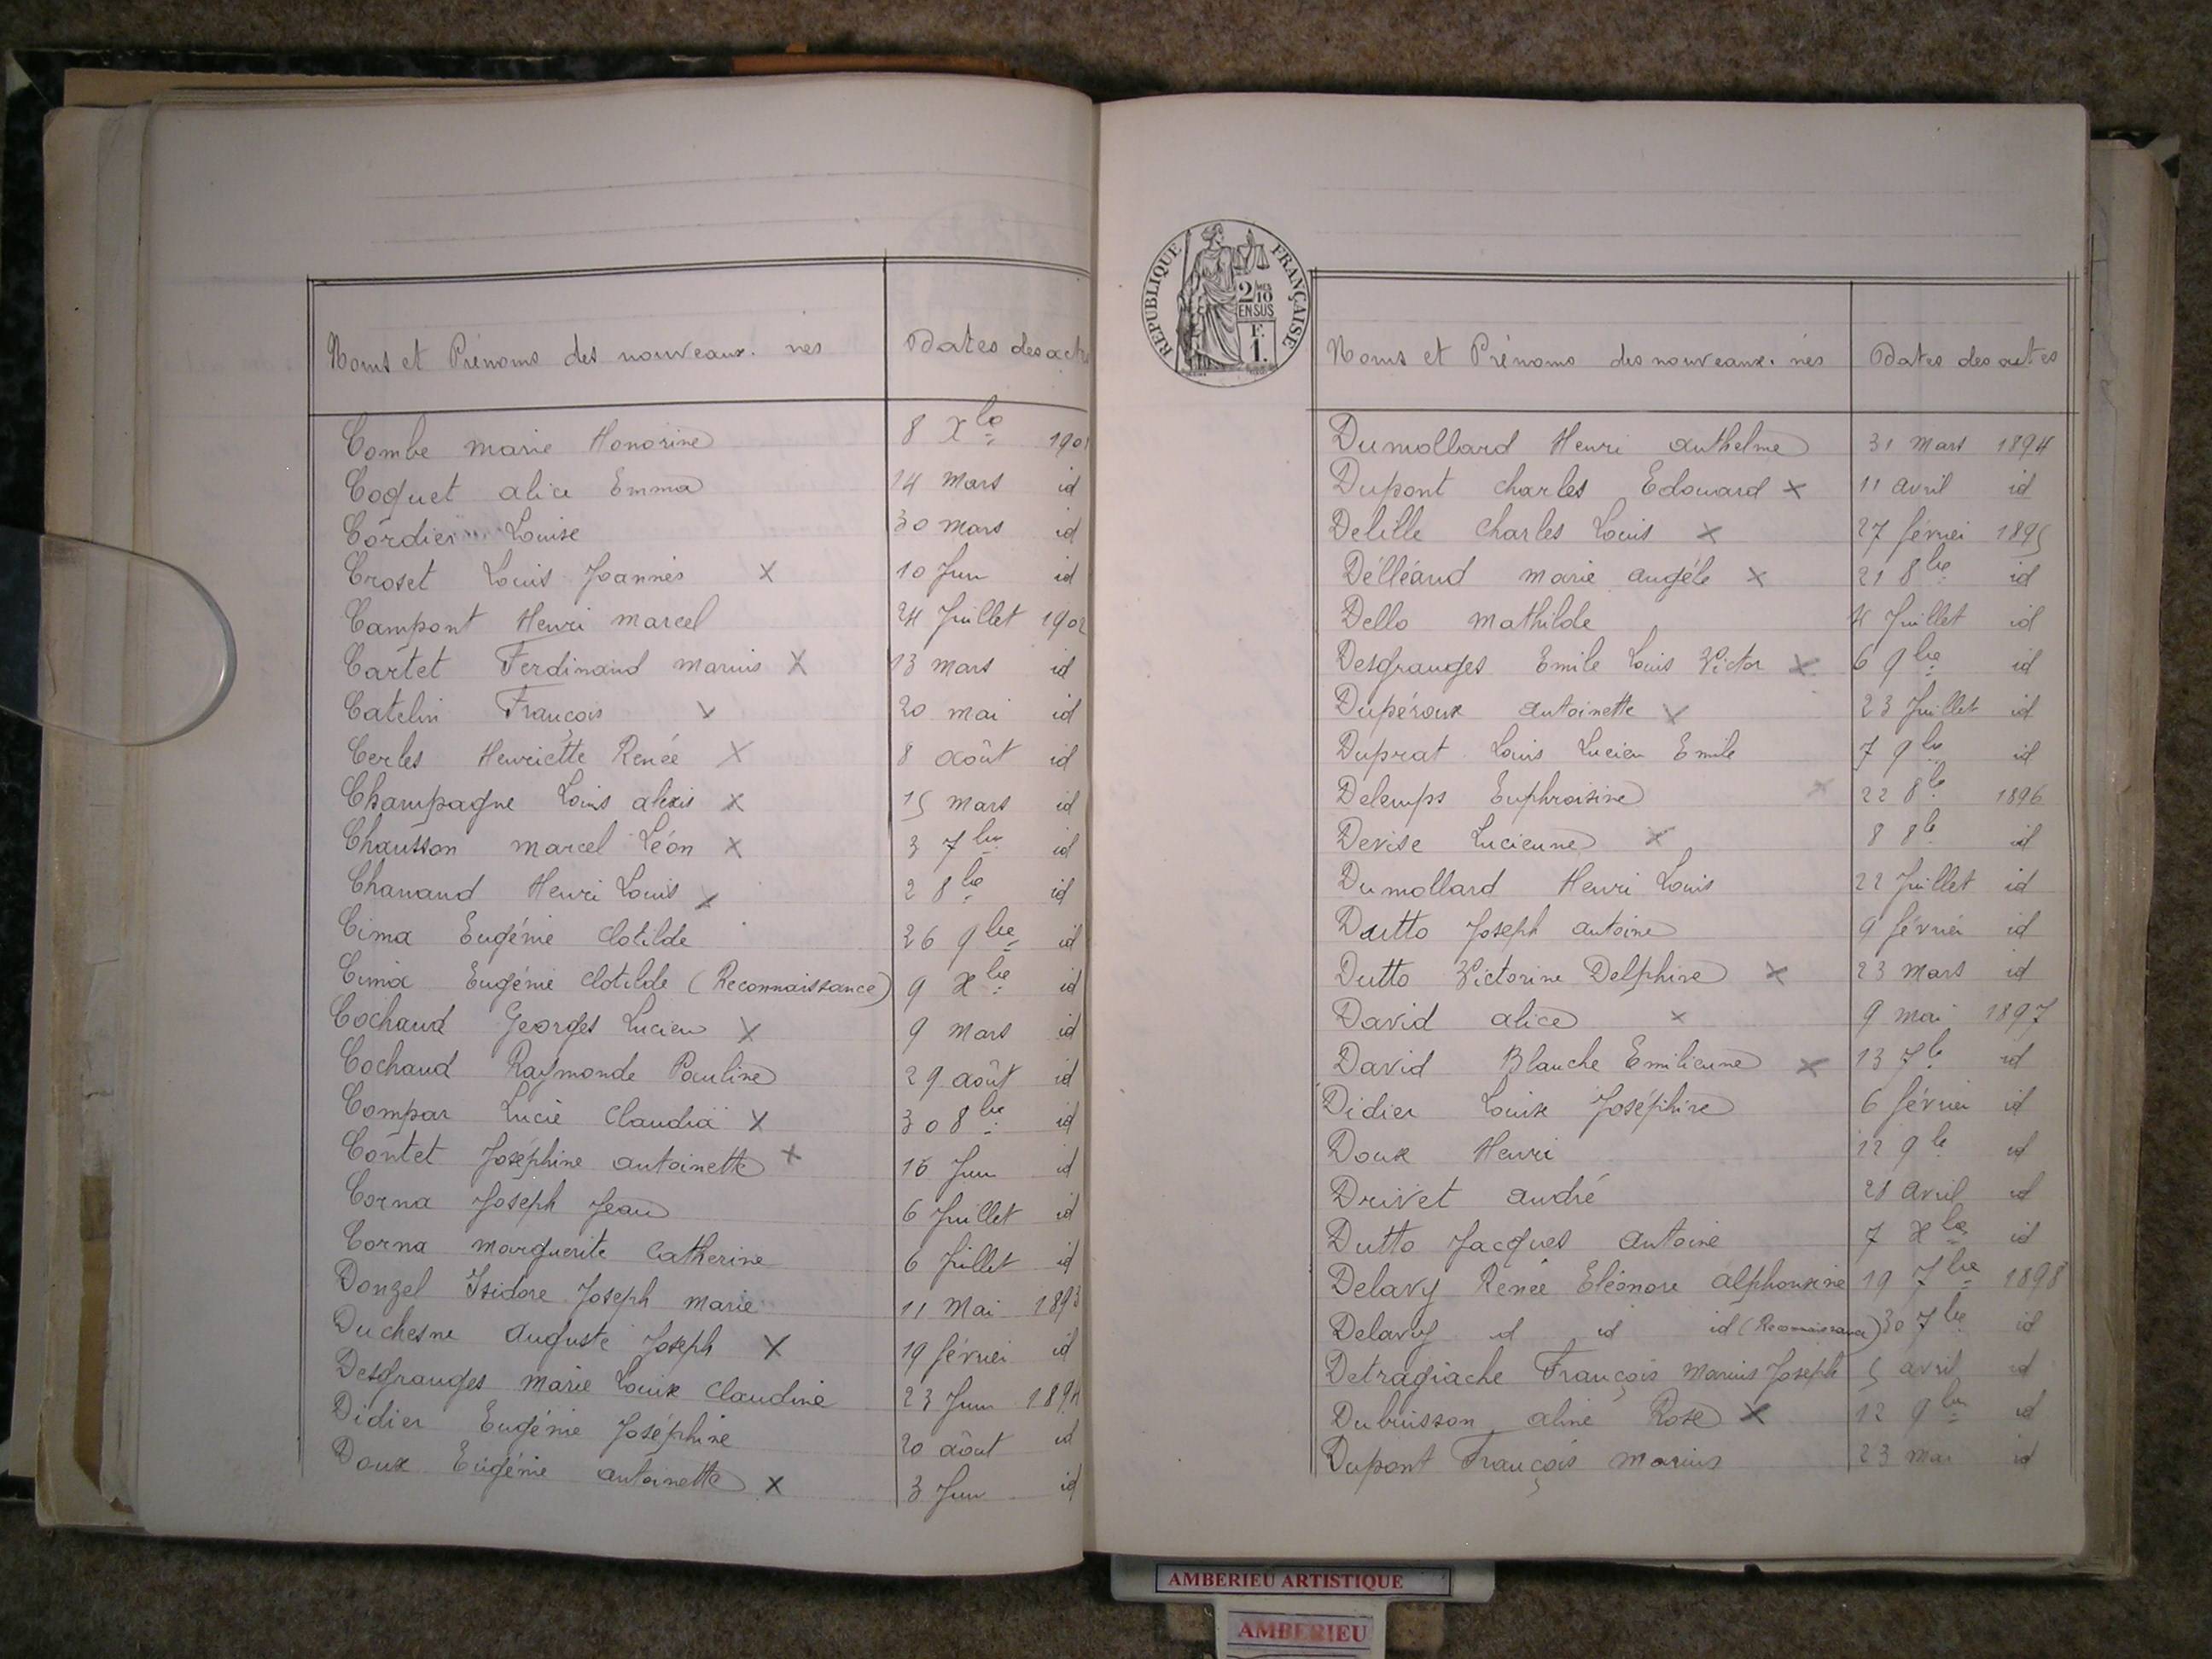 Noms et Prénoms des nouveaux. nés Dates des acte
Combe marie Honorine 8 Xbre 1901
Coquet alice Emma 24 mars id
Cordier Louise 30 mars id
Croset Louis Joannès X 10 Juin id
Campont Henri marcel 24 Juillet 1902
Cartet Ferdinand marius X 13 mars id
Catelin François X 20 mai id
Cerles Henriette Renée X 8 août id
Champagne Louis alexis X 15 mars id
Chausson marcel Léon X 3 7bre id
Chanand Henri Louis X 2 8bre id
Cima Eugénie Clotilde 26 9bre id
Cima Eugénie Clotilde (Reconnaissance) 9 Xbre id
Cochaud Georges Lucien X 9 mars id
Cochaud Raymonde Pauline 29 août id
Compar Lucie Claudia X 30 8bre id
Contet Joséphine antoinette X 16 Juin id
Corna Joseph Jean 6 Juillet id
Corna marguerite Catherine 6 Juillet id
Donzel Isidore Joseph marie 11 Mai 1893
Duchesne Auguste Joseph X 19 février id
Desgranges marie Louise Claudine 23 Juin 1894
Didier Eugénie Joséphine 20 août id
Doux Eugénie antoinette X 3 Juin id
REPUBLIQUE FRANÇAISE
2/10 MES
EN SUS
F.
1.
Noms et Prénoms des nouveaux. nés Dates des actes
Dumollard Henri anthelme 31 mars 1894
Dupont charles Edouard X 11 avril id
Delille Charles Louis X 27 février 1895
Délléaud marie angéle X 21 8bre id
Dello mathilde 4 Juillet id
Desgranges Emile Louis Victor X 6 9bre id
Dupéroux antoinette X 23 Juillet id
Duprat Louis Lucien Emile 7 9bre id
Delemps Euphroisine X 22 8b 1896
Devise Lucienne X 8 8b id
Dumollard Henri Louis 22 Juillet id
Dutto Joseph antoine 9 février id
Dutto Victorine Delphine X 23 mars id
David alice X 9 mai 1897
David Blanche Emilienne X 13 7b id
Didier Louise Joséphine 6 février id
Doux Henri 22 9b id
Drivet andré 28 avril id
Dutto Jacques Antoine 7 Xbre id
Delavy Renée Eléonore alphonsine 19 7bre 1898
Delavy id id id (Reconnaissance) 30 7bre id
Detragiache François Marius Joseph 5 avril id
Dubuisson aline Rose X 12 9bre id
Dupont François marius 23 mai id
AMBERIEU ARTISTIQUE
AMBERIEU